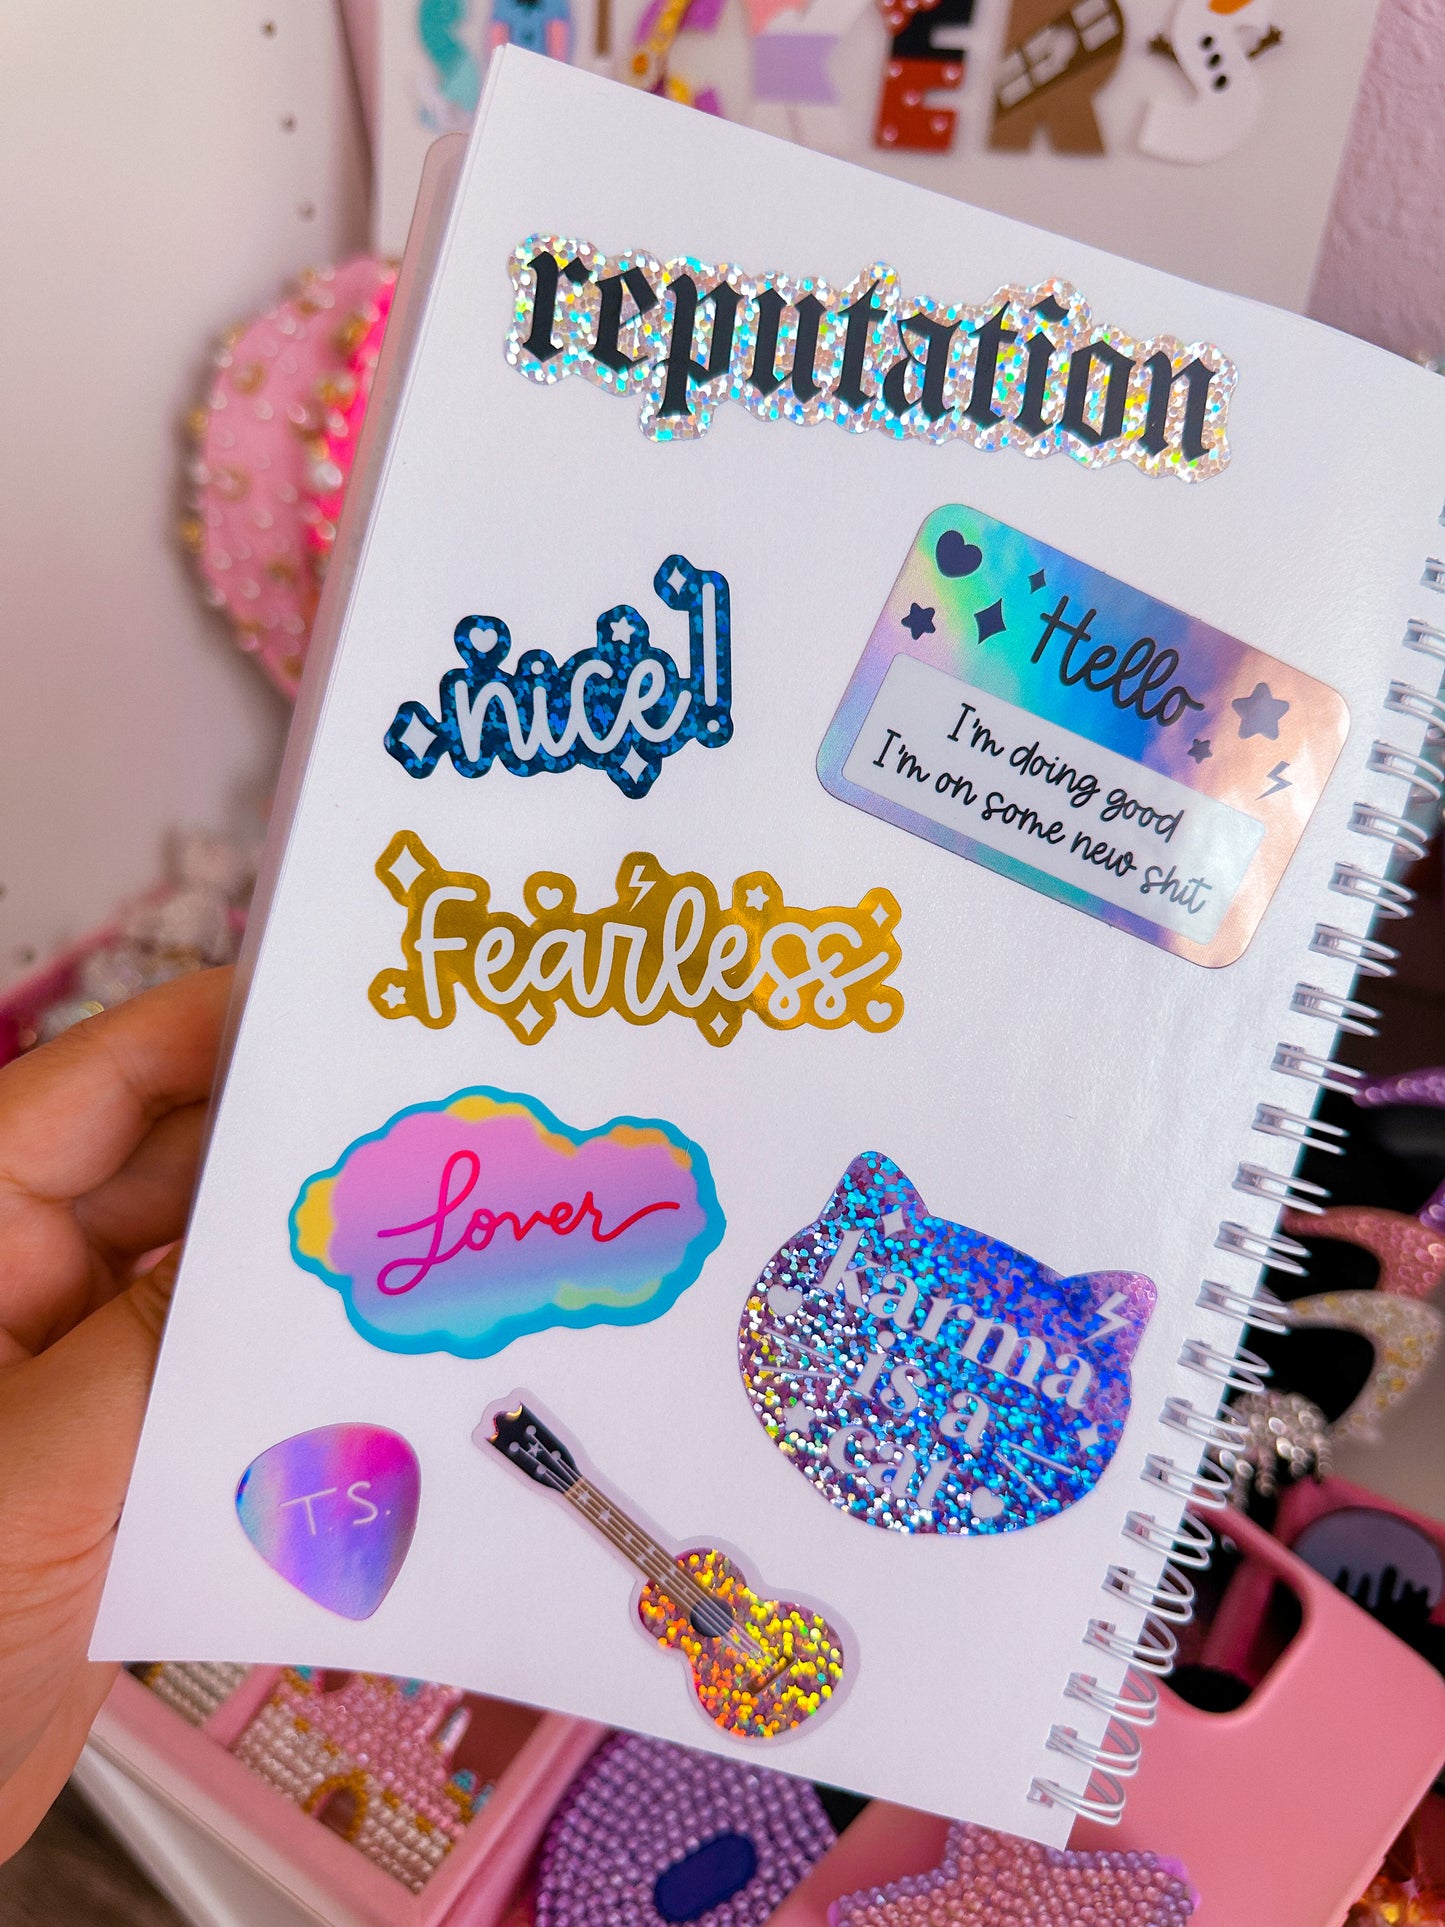 STICKERS
reputation
nice!
Hello
I'm doing good
I'm on some new shit
Fearless
Lover
karma
is a
cat
T.S.